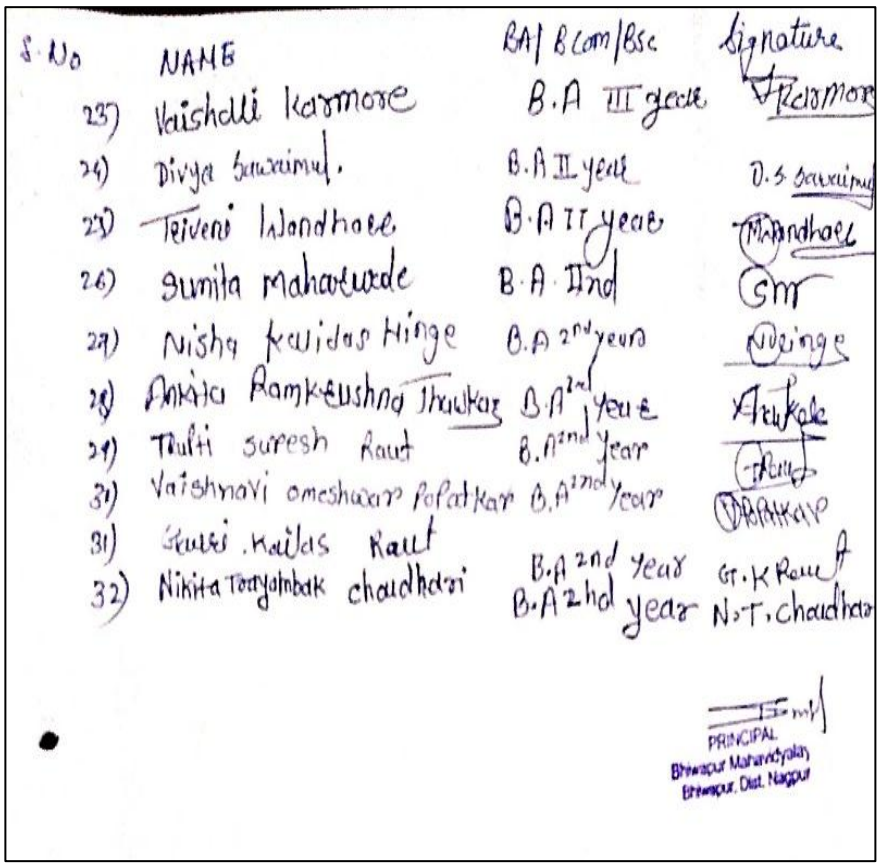 S.No NAME BA/ BCom/Bsc Signature
23) Vaishali Karmore B.A III year VKarmore
24) Divya Sawaimul. B.A II year D.S. Sawaimul
25) Triveni Wandhare B.A II year
26) Sunita B.A. IInd SM
27) Nisha Kalidas Hinge B.A 2nd years
28) Ankita Ramkrushna B.A 2nd year
29) Trupti Suresh Raut B.A 2nd year TRaut
Vaishnavi Omeshwar Popatkar B.A 2nd year VPopatkar
31) Kailas Raut B.A 2nd year G.K Raut
32) Nikita Trayambak Chaudhari B.A 2nd year N.T. Chaudhari
PRINCIPAL
Bhiwapur Mahavidyalay
Bhiwapur, Dist. Nagpur